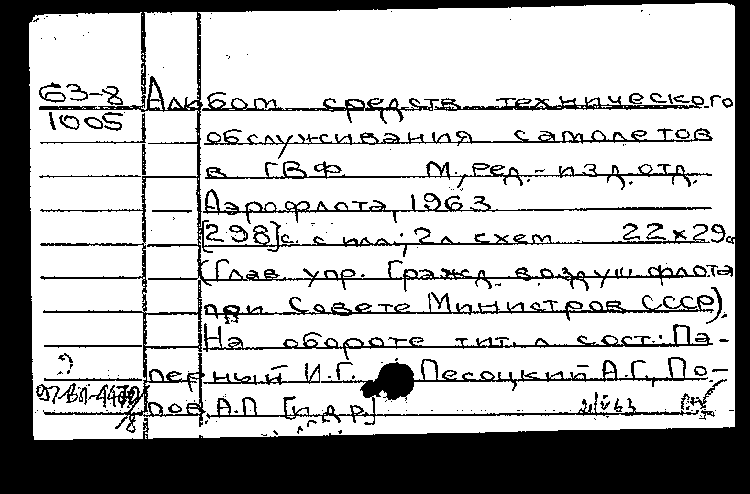 63-8 Альбом средств технического
1005 обслуживания самолетов
в ГВФ М., ред.-изд. отд.
Аэрофлота, 1963
[298] с. с илл; 2 л схем 22×29 см
(Глав упр. Гражд. воздуш флота
при Совете Министров СССР).
На обороте тит. л сост.: Па-
перный И.Г. Песоцкий А.Г., По-
пов, А.П [и др]